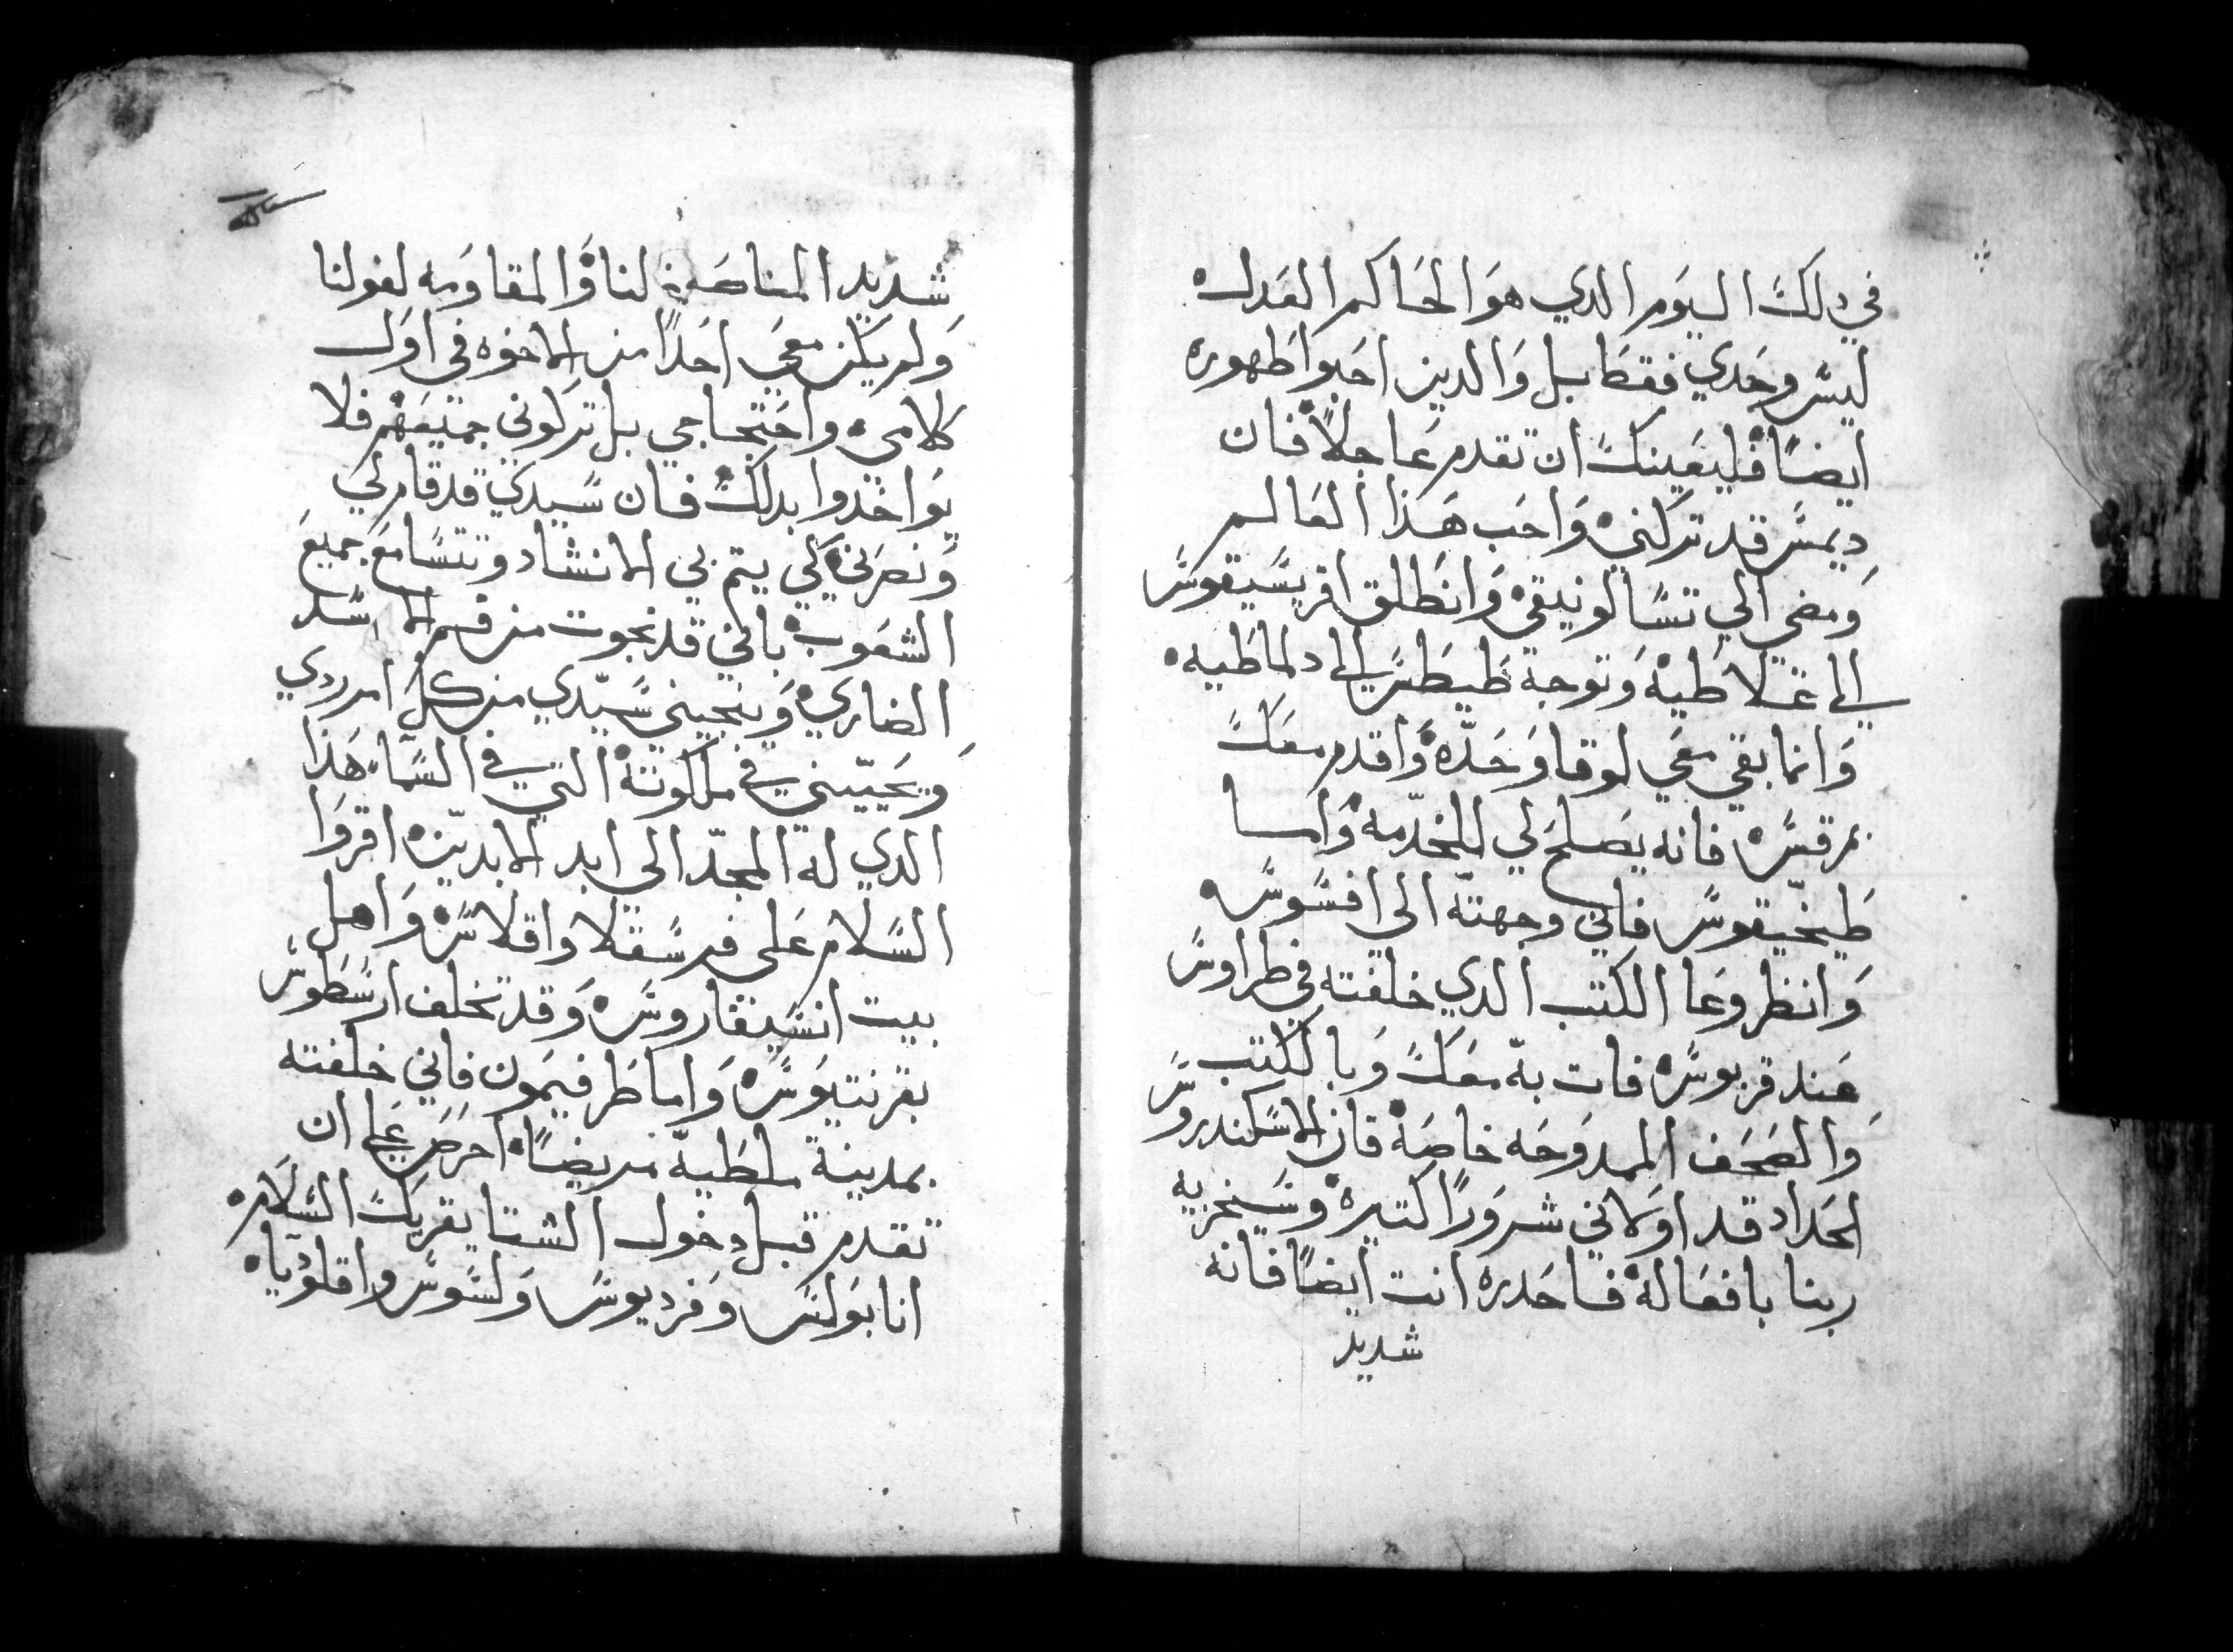 في دلك اليوم الدي هو الحاكم العدل
ليس وحدي فقط بل والدين احبوا ظهوره
ايضا فليعينك ان تقدم عاجلا فان
ديمس قد تركني واحب هذا العالم
ومضي الي تسالونيقي وانطلق اقريسيقوس
الى غلاطيه وتوجه طيطس الى دلماطيه
وانما بقي معي لوقا وحده واقدم معك
بمرقس فانه يصلح لي للخدمه واما
طيخيقوس فاني وجهته الي افسوس
وانظر وعا الكتب الدي خلفته في طراوس
عند قربوس فات به معك وبالكتب
والصحف المدوحه خاصه فان الاسكندروس
الحداد قد اولاني شرورا كتيره وسيخزيه
ربنا بافعاله فاحدره انت ايضا فانه
شديد
شديد المناصه لنا والمقاومه لقولنا
ولم يكن معي احدا من الاخوه في اول
كلامي واحتجاجي بل تركوني جميعهم فلا
يواخدوا بدلك فان سيدي قد قام لي
ونصرني كي يتم بي الانشاد وتتسامع جميع
الشعوب باني قد نجوت من فم الاسد
الضاري وينجيني سيدي من كل امر ردي
ويحييني في ملكوته التي في السما هذا
الدي له المجد الي ابد الابدين اقروا
السلام على فرسقلا واقلاس واهل
بيت انسيفاروس وقد تخلف ارسطوس
بقرنتيوس واما طرفيمون فاني خلفته
بمدينة ملطيه مريضا احرص على ان
تقدم قبل دخول الشتا يقريك السلام
انا بولس وفرديوس ولسوس واقلوديا